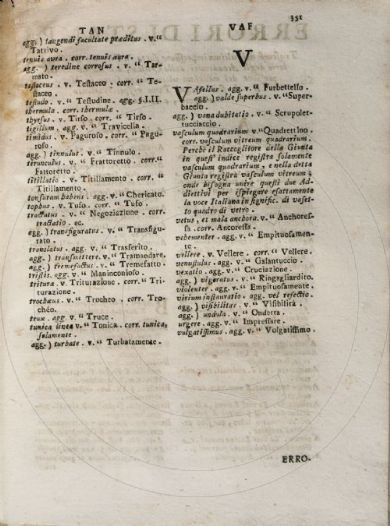 351
TAN
agg. ) tangendi facultate præditus . v. “
Tattivo.
tenuis aura . corr. tenuis aura .
agg. ) teredine corrosus . v. “ Tar-
mato.
testaceus . v. Testaceo . corr. “ Te-
staceo
testudo . v. “ Testudine . agg. §.I.II.
thermula . corr. thermula .
thyrsus . v. “ Tirso . corr. “ Tirso .
tigillum . agg. v. “ Travicella .
timidus . v. Paguroso . corr. “ Pagu-
roso.
agg. ) tinnulus . v. “ Tinnulo .
teruncius . v. “ Frattoretto . corr. “
Fattoretto .
titillatio . v. “ Titilamento . corr. “
Titillamento .
tonsuram habens . agg. v. “ Chericato.
tophus . v. Tufo . corr. “ Tufo .
tractatus . v. “ Negoziazione . corr.
tractatio . ec.
agg. ) transfiguratus . v. “ Transfigu-
rato .
translatus . agg. v. “ Trasferito .
agg. ) transmittere . v. “ Tramandare .
agg. ) tremefactus . v. “ Tremefatto .
tristis . agg. v. “ Maninconioso .
tritura . v. Triturazione . corr. “ Tri-
turazione .
trochæus . v. “ Trochèo . corr. Tro-
chéo.
trux . agg. v. “ Truce .
tunica linea v. “ Tonica . corr. tunica,
solamente .
agg. ) turbate . v. “ Turbatamente .
VAF
V
VAsellus . agg. v. “ Furbettello .
agg. ) valde superbus . v. “ Super-
baccio .
agg. ) vana dubitatio . v. “ Scrupolet-
tucciaccio .
vasculum quadrarium v. “ Quadrettino .
corr. vasculum vitreum quadrarium .
Perchè il Raccoglitore della Giunta
in quest' indice registra solamente
vasculum quadrarium , e nella detta
Giunta registra vasculum vitreum ;
onde bisogna unire questi due Ad-
diettivi per ispiegare esattamente
la voce Italiana in signific. di vaset-
to quadro di vetro .
vetus , et mala anchora . v. “ Anchoress-
sa . corr. Ancoressa .
vehementer . agg. v. “ Empituosamen-
te .
vellere . v. Vellere . corr. “ Vellere .
venustulus . agg. v. “ Galantuccio .
vexatio . agg. v. “ Cruciazione .
agg. ) vigoratus . v. “ Ringagliardito .
violenter . agg. v. “ Empituosamente .
virium instauratio . agg. vel refectio .
agg. ) visibilitas . v. “ Visibilità .
agg. ) undula . v. “ Ondetta .
urgere . agg. v. “ Impressare .
vulgatissimus . agg. v. “ Volgatissimo .
ERRO-